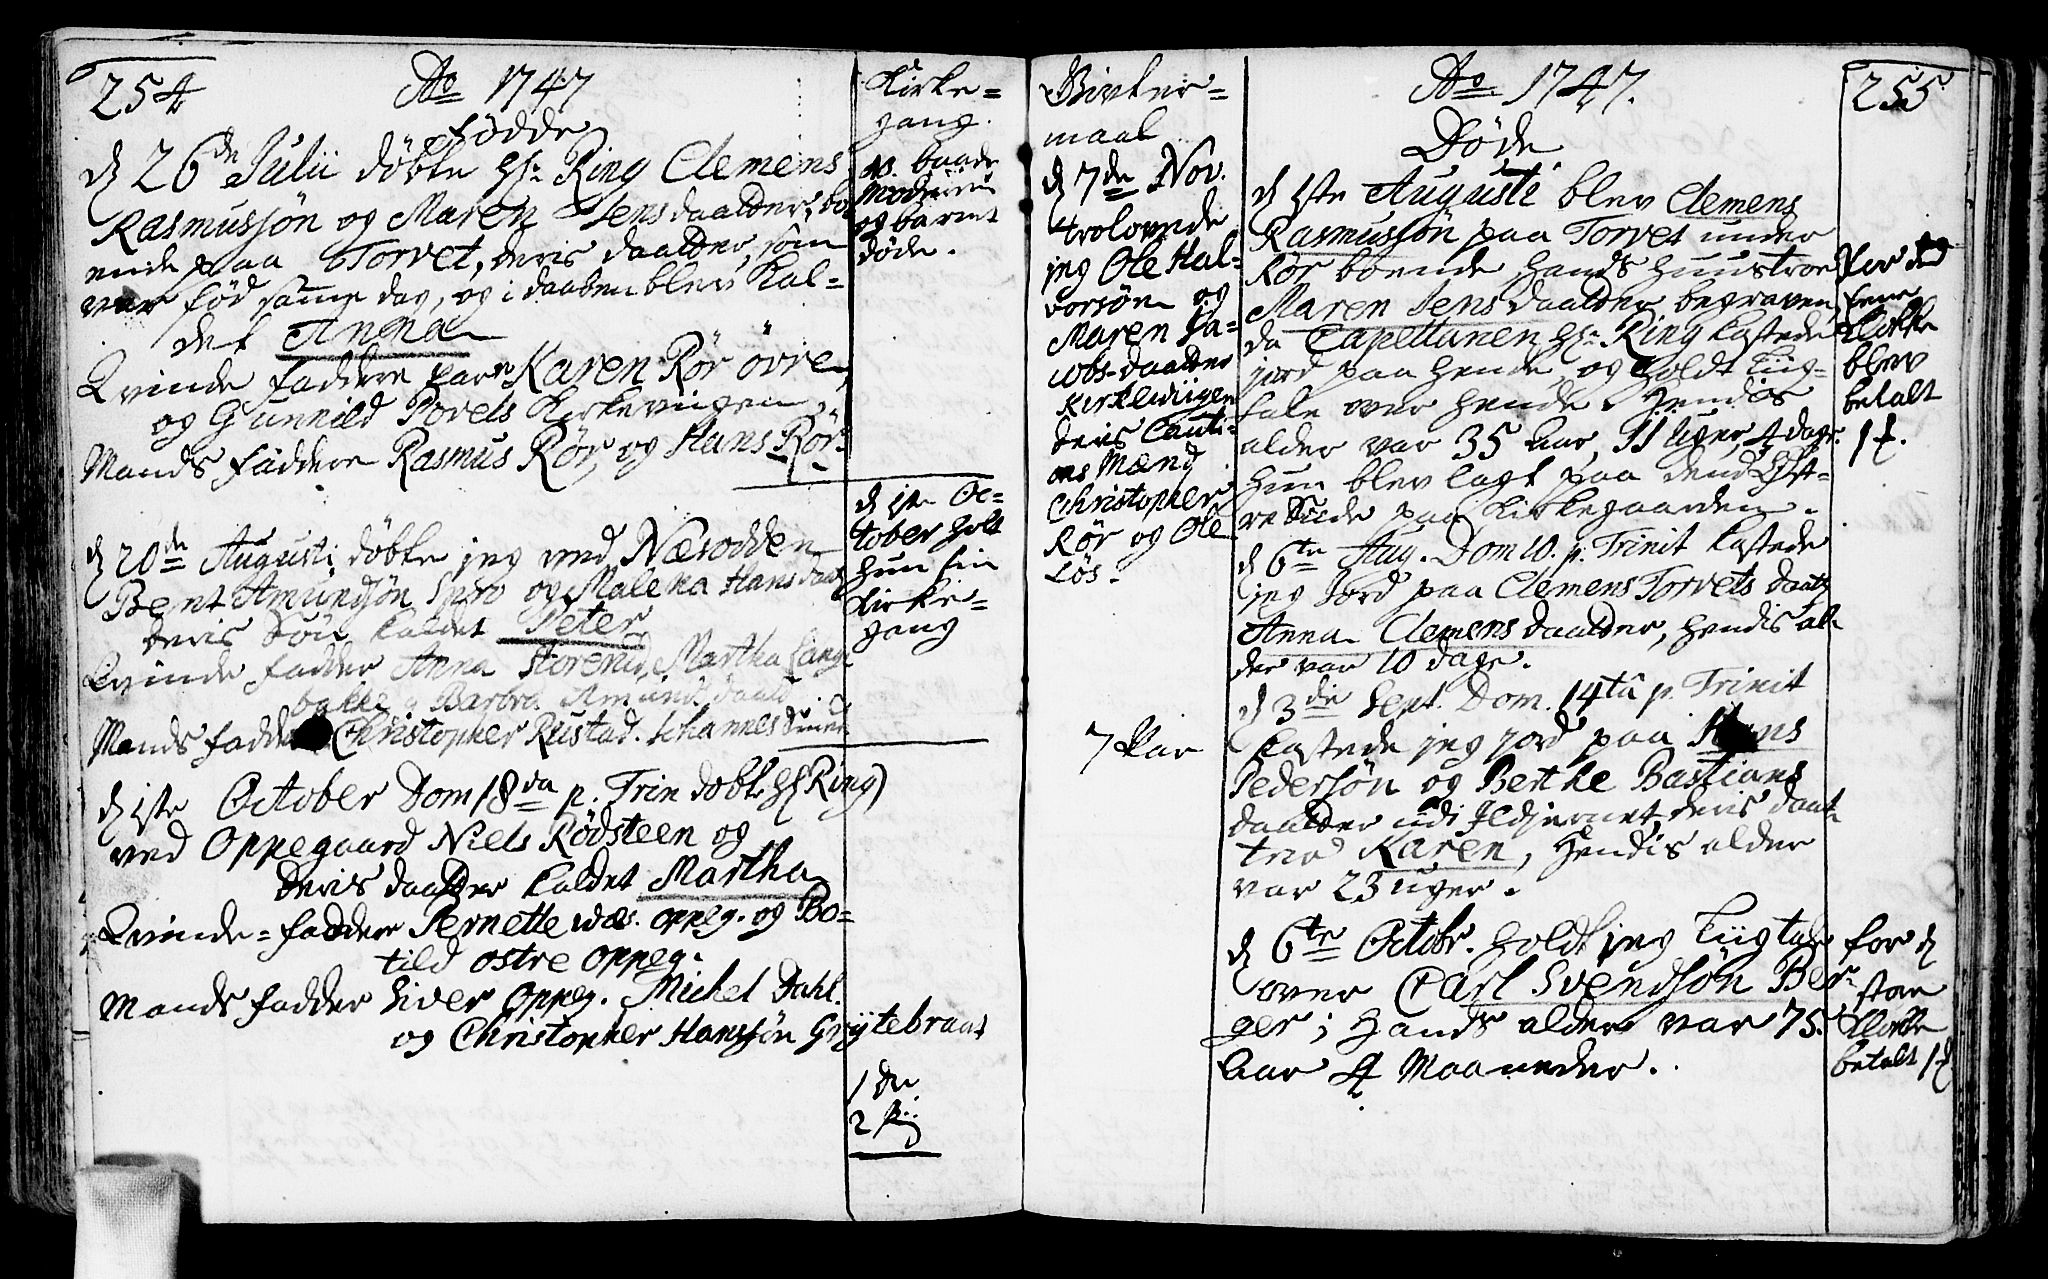 254
Ao 1747
Fødde
d 26de Julii døbte Hr. Ring Clemens
Rasmussøn og Maren Jensdaatter, bo
ende paa Torvet, deris daatter, som
var fød samme dag, og i daaben blev kal-
det Anna
Qvinde faddere vare Karen Rør øvre,
og Gunnild Povels Kirkeviigen,
Mands faddere Rasmus Rør, og Hans Rør.
d 20de Augusti døbte jeg ved Næsodden
Bent Amundsøn Spro og Malena Hansdaatt
deris Søn kaldet Peter
Qvinde fadder Anna Storerud, Martha Lang-
bakke og Barbra Amundsdaatt
Mands fadder Christopher Rustad. Johannes Smed
d 1ste October Dom 18da p. Trin døbte Hr Ring
ved Oppegaard Niels Rødsteen og
deris daatter kaldet Martha
Qvinde-faddere Pernette oppeg. og Bo-
tild østre oppeg.
Mands fadder Siver Oppeg. Michel Dahl.
og Christopher Hanssøn Grytebraat
Kirke-
gang.
NB. baade
Moderen
og barnet
døde.
d 1ste Oc-
tober holt
hun sin
Kirke-
gang
1 dr
2 pig
Givter-
maal
d 7de Nov.
trolovede
jeg Ole Hal-
vorsøn og
Maren Ja-
cobs-daatter
Kirkeviigen
deris Cauti-
ons Mænd
Christopher
Rør og Ole
Løs.
7 Par
Ao 1747.
Døde
d 1ste Augusti blev Clemens
Rasmussøn paa Torvet under
Rør boende hands huustroe
Maren Jensdaatter begraven,
da Capellanen Hr. Ring kastede
jord paa hende, og holdt Liig-
tale over hende. Hendis
alder var 35 Aar, 11 uger, 4 dage.
hun blev lagt paa dend Øst-
re Siide paa Kirkegaarden.
d 6te Aug. Dom 10. p. Trinit kastede
jeg Jord paa Clemens Torvets daatt
Anna Clemens daatter, hendis al-
der var 10 dage.
d 3die Sept. Dom. 14ta p. Trinit
kastede jeg jord paa Hans
Pedersøn og Berthe Bastians
daatter udi Ildjernet deris daat-
ter Karen, Hendis alder
var 23 uger.
d 6te Octobr. holdt jeg Liigtale
over Carl Svendsøn Ber-
ger; hands alder var 75.
Aar 4 Maaneder.
255
For den
ene
Klokke
blev
betalt
1 f.
for d
store
Klokke
betalt 1 f